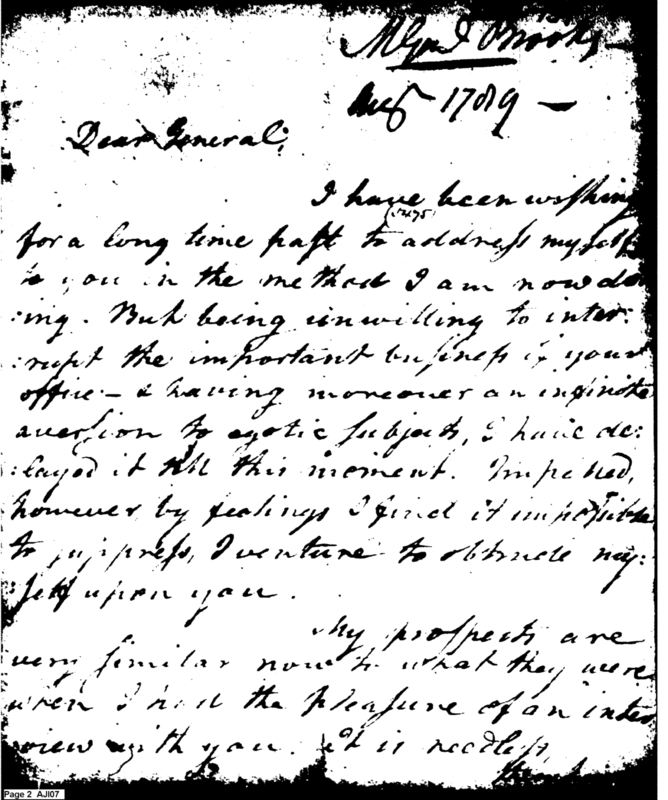 Brooks
Aug 1789 —
Dear General;
I have been wishing
(5475)
for a long time past to address myself
to you in the method I am now do
:ing. But being unwilling to inter:
:rupt the important business of your
office — & having moreover an infinite
aversion to egotic subjects, I have de:
:layed it till this moment. Impelled,
however by feelings I find it impossible
to suppress, I venture to obtrude my:
:self upon you.
My prospects are
very similar now to what they were
when I had the pleasure of an inter
view with you. It is needless,
Page 2 AJI07